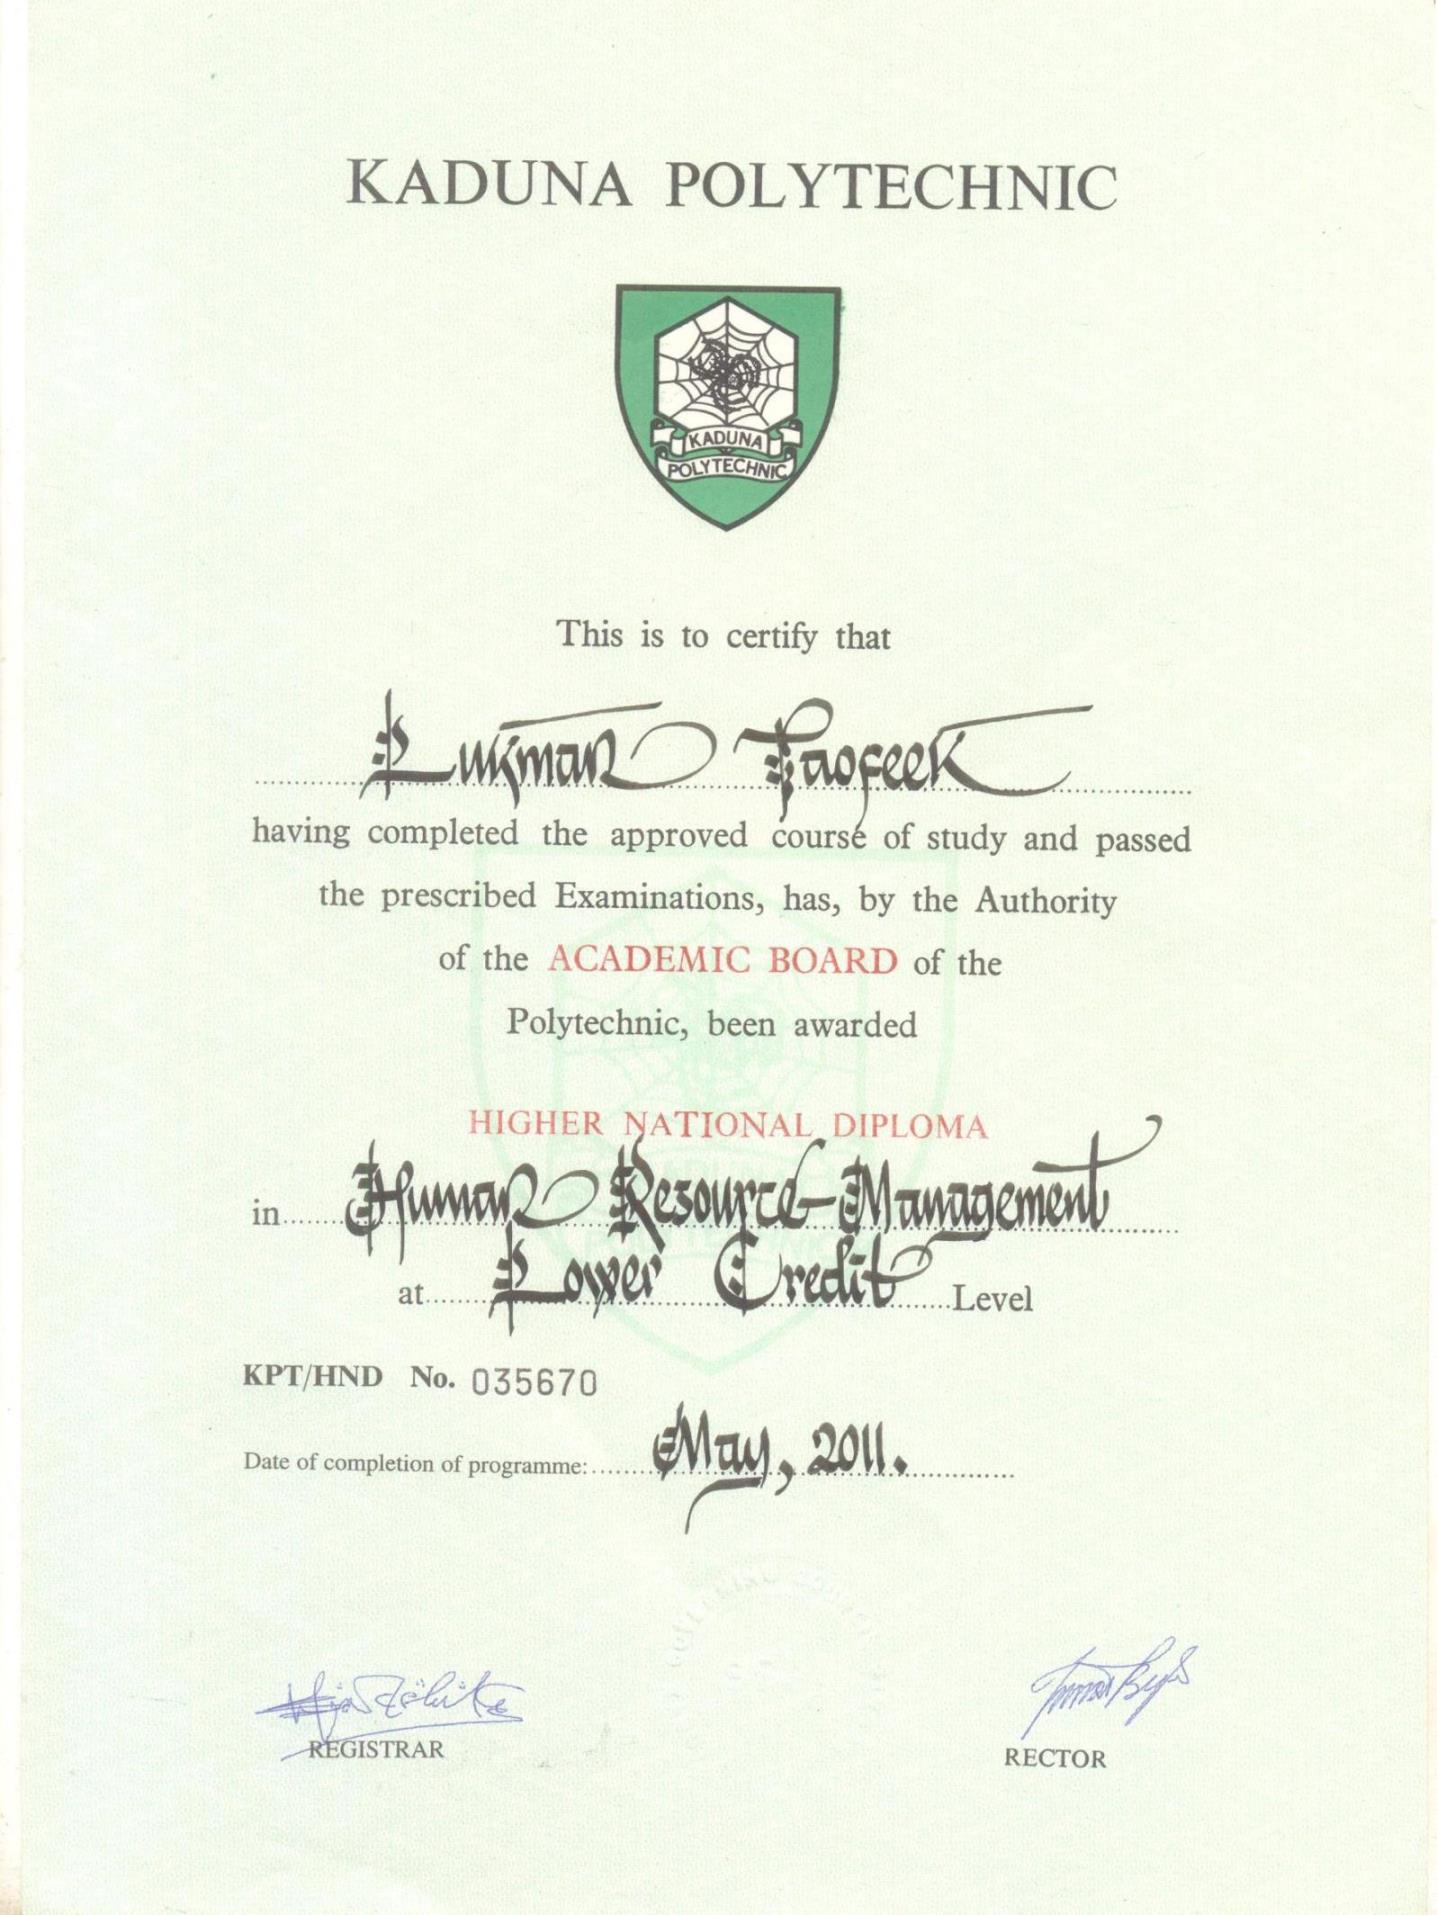 KADUNA POLYTECHNIC
KADUNA
POLYTECHNIC
This is to certify that
Lukman Taofeek
having completed the approved course of study and passed
the prescribed Examinations, has, by the Authority
of the ACADEMIC BOARD of the
Polytechnic, been awarded
HIGHER NATIONAL DIPLOMA
in Human Resource Management
at Lower Credit Level
KPT/HND No. 035670
Date of completion of programme: May, 2011.
REGISTRAR
RECTOR